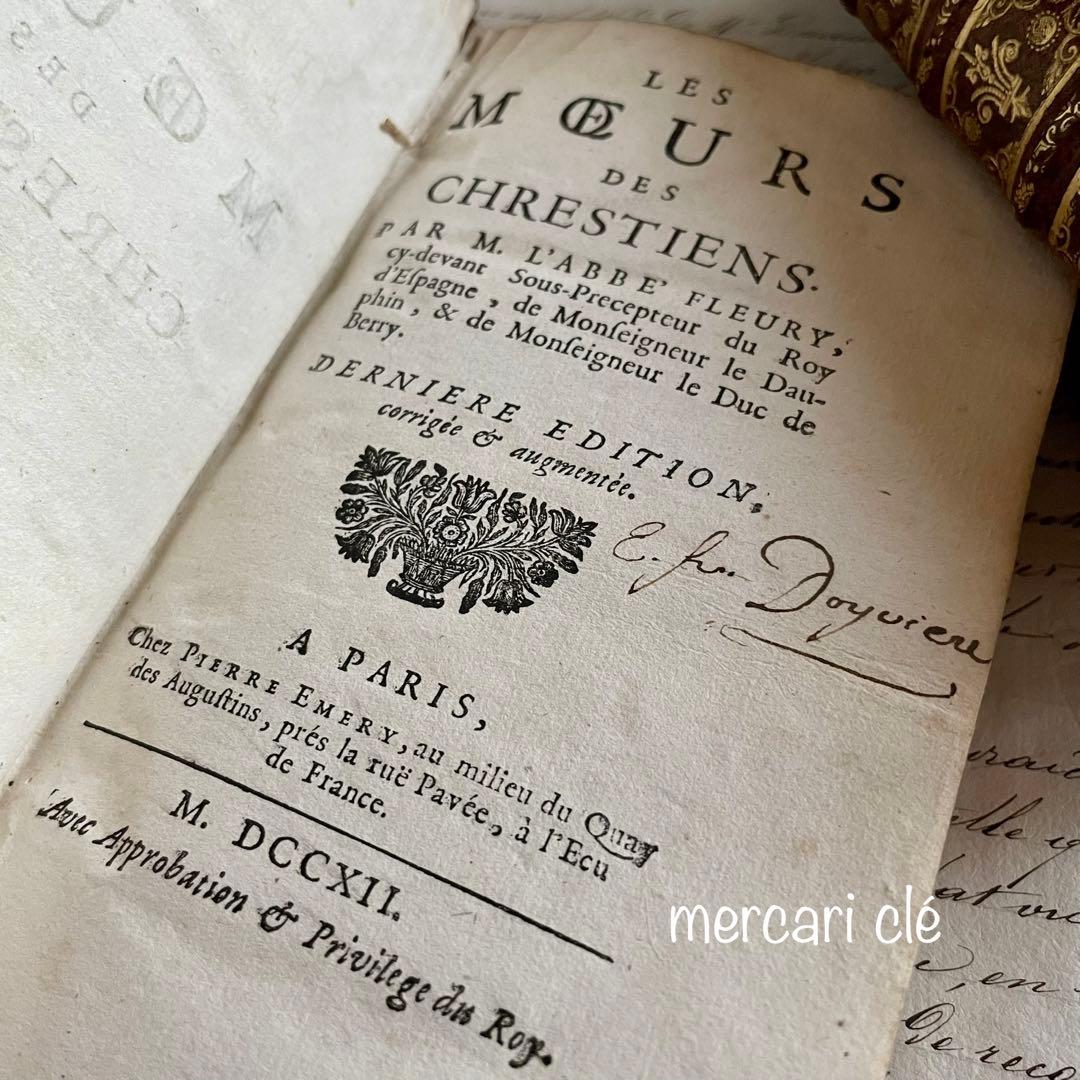 LES
MŒURS
DES
CHRESTIENS.
PAR M. L'ABBE' FLEURY,
cy-devant Sous-Precepteur du Roy
d'Eſpagne, de Monſeigneur le Dau-
phin, & de Monſeigneur le Duc de
Berry.
DERNIERE EDITION,
corrigée & augmentée.
E. fr. Doyviere
A PARIS,
Chez PIERRE EMERY, au milieu du Quay
des Auguſtins, prés la ruë Pavée, à l'Ecu
de France.
M. DCCXII.
Avec Approbation & Privilege du Roy.
mercari clé